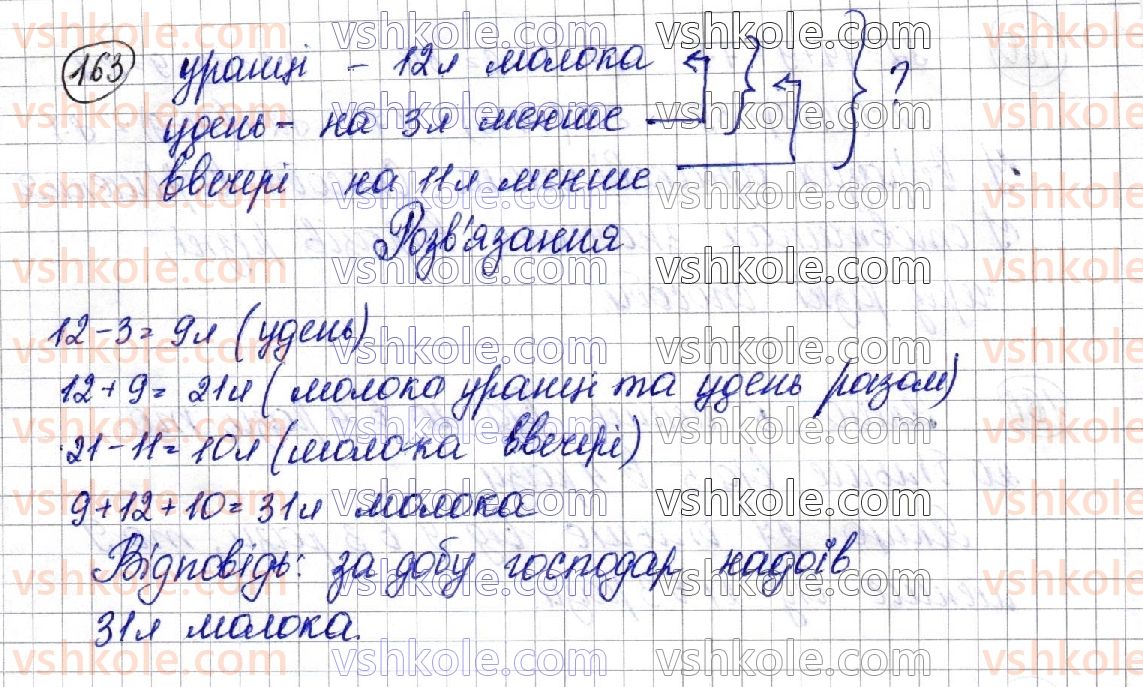 163 уранці - 12л молока
удень - на 3л менше
ввечері на 11л менше
?
Розв'язання
12-3=9л (удень)
12+9=21л (молока уранці та удень разом)
21-11=10л (молока ввечері)
9+12+10=31л молока
Відповідь: за добу господар надоїв
31л молока.
vshkole.com